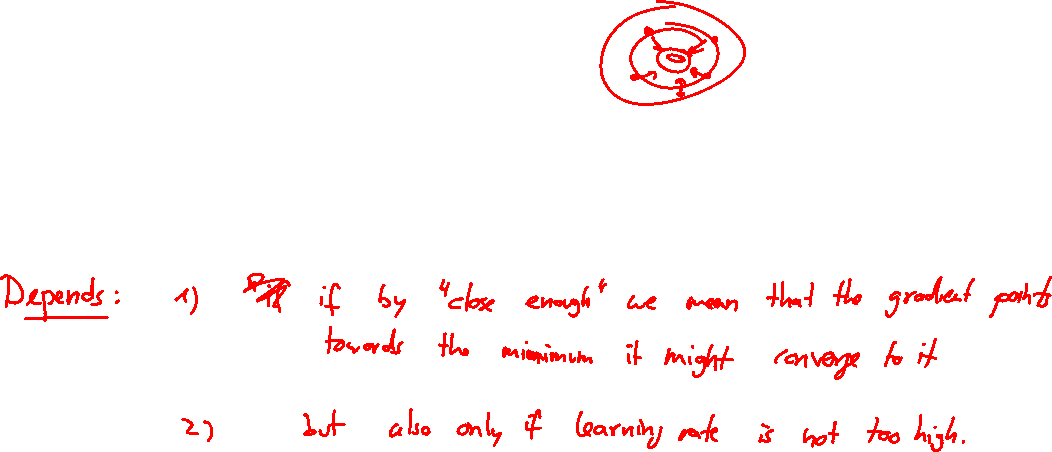 Depends: 1) if by "close enough" we mean that the gradient points
towards the minimum it might converge to it
2) but also only if learning rate is not too high.